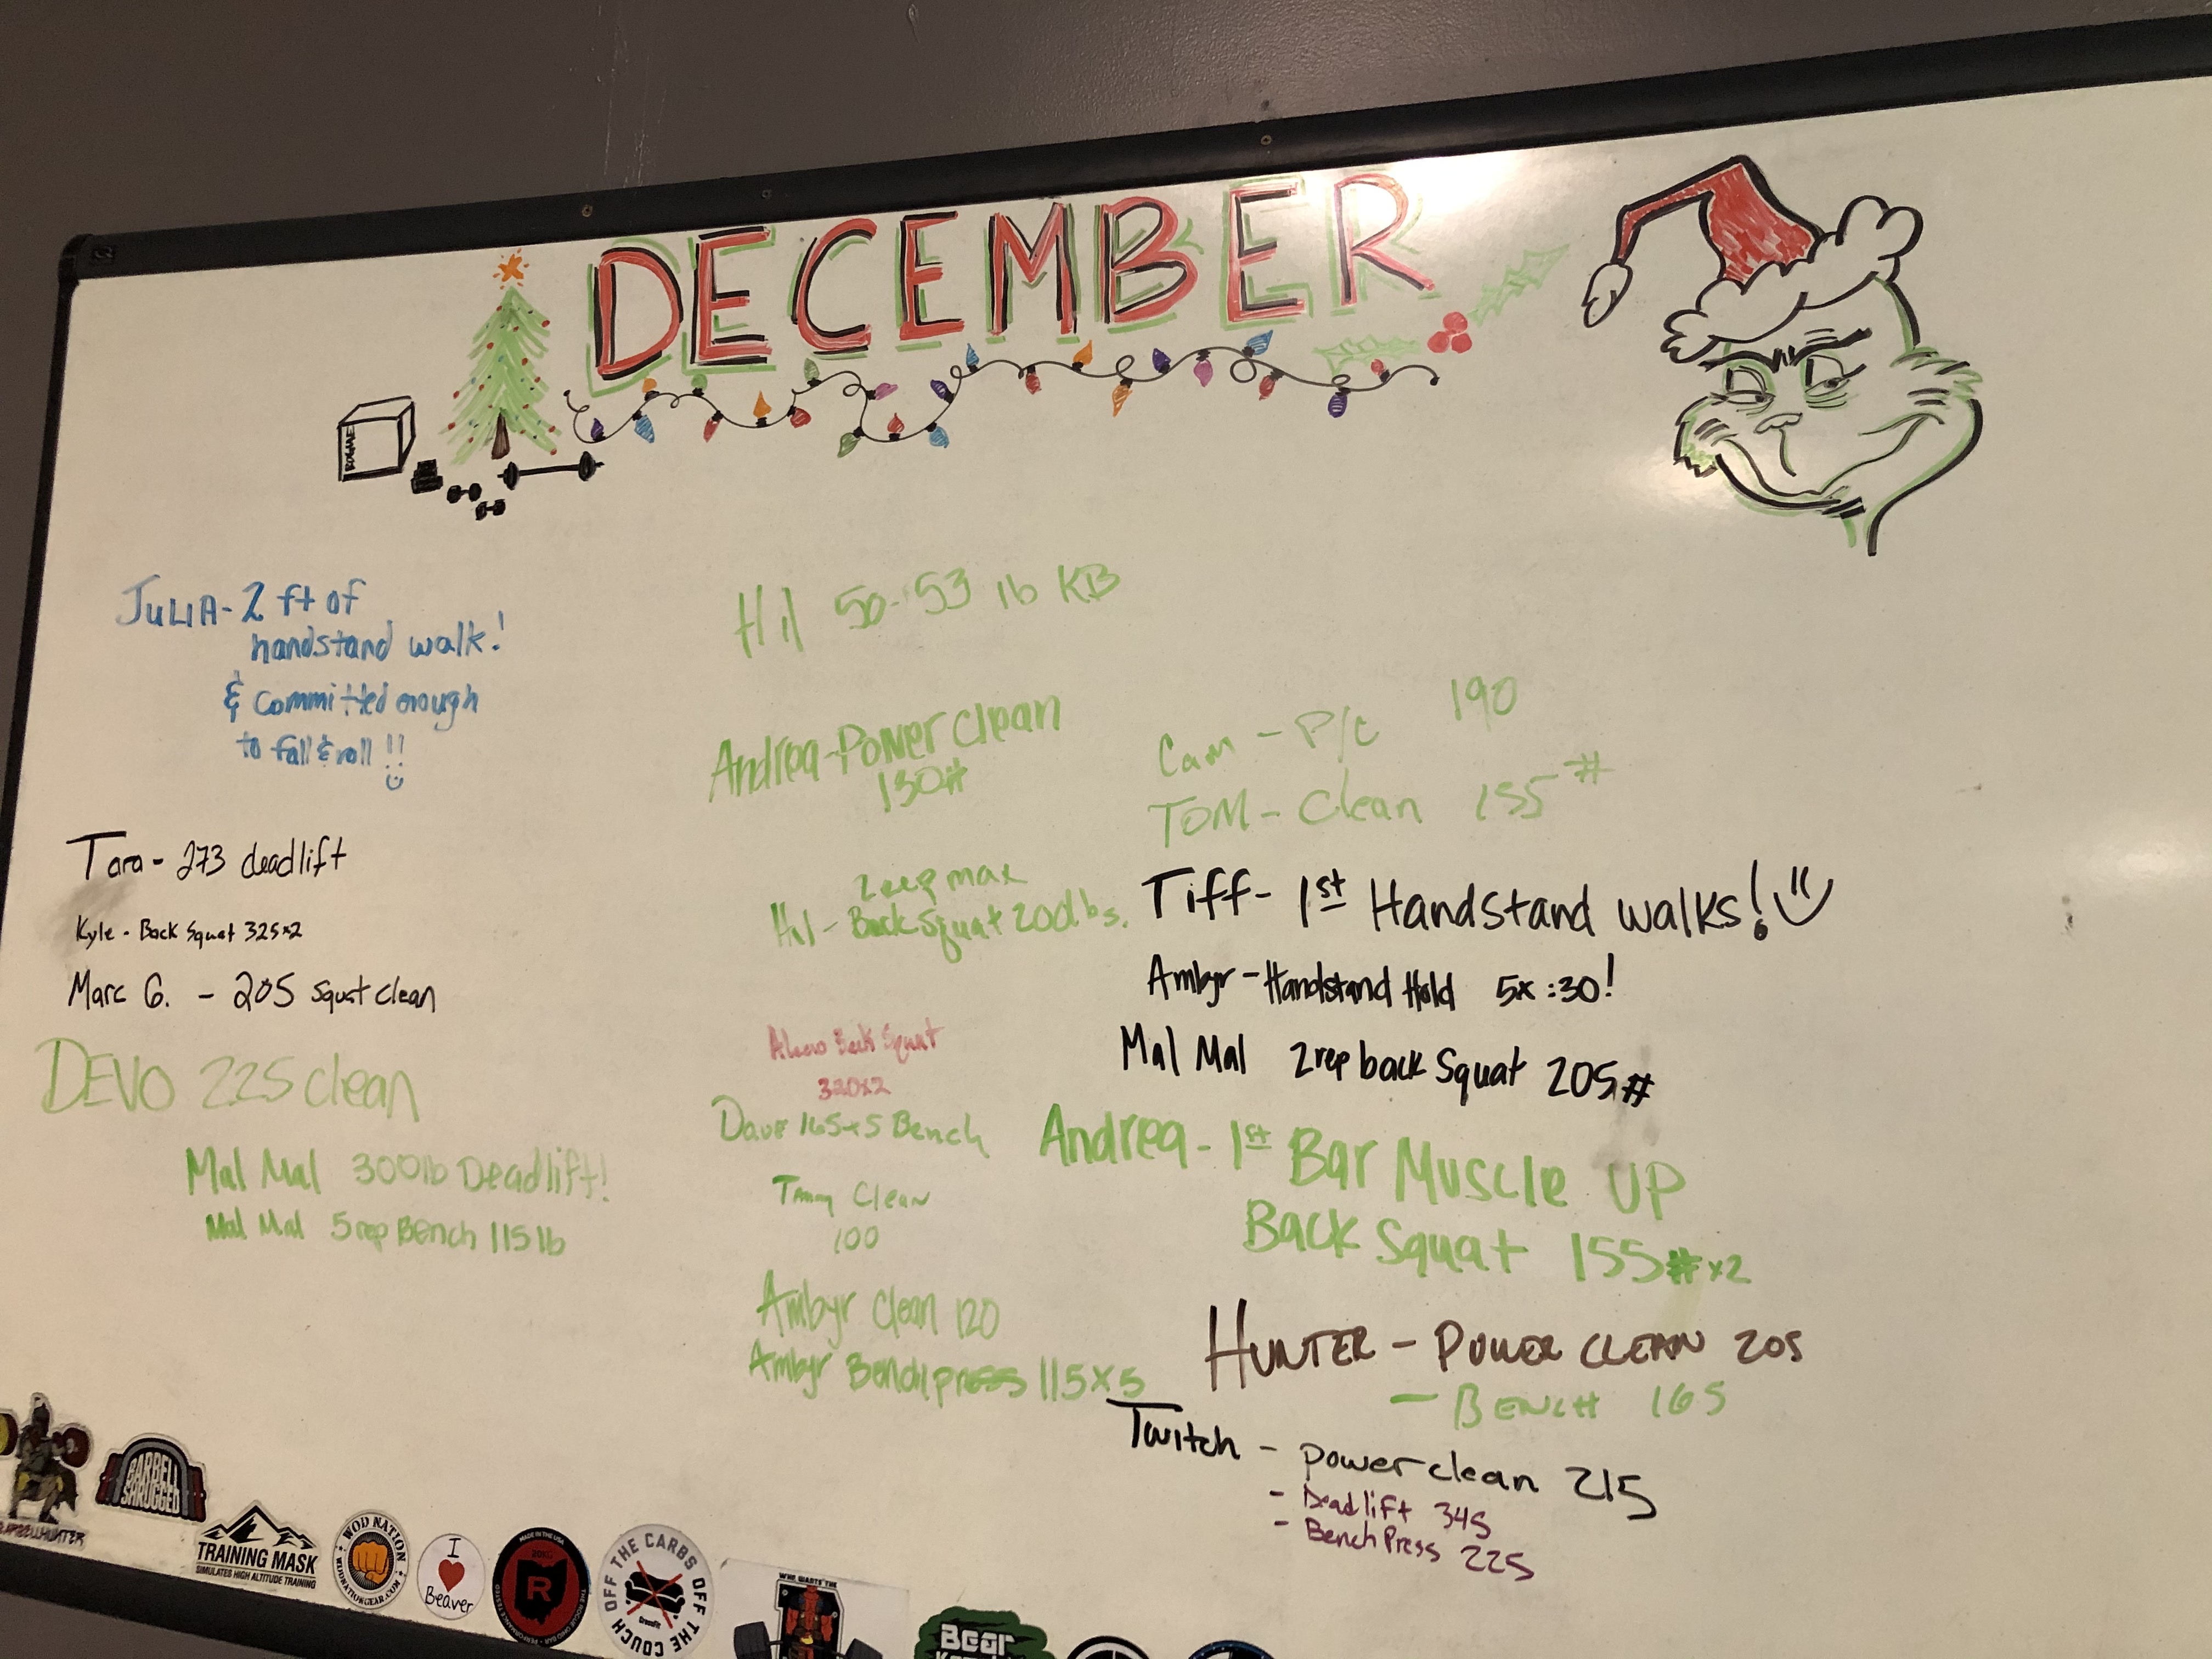 DECEMBER
ROGUE
JULIA - 2 ft of
handstand walk!
& committed enough
to fall & roll !!
Tara - 273 deadlift
Kyle - Back Squat 325x2
Marc G. - 205 squat clean
DEVO 225 clean
Mal Mal 300lb Deadlift!
Mal Mal 5 rep Bench 115 lb
Hil 50-53 lb KB
Andrea - Power Clean
130#
2 rep max
Hil - Back Squat 200lbs.
Back Squat
320x2
Dave 165x5 Bench
Tammy Clean
100
Ambyr Clean 120
Ambyr Bench press 115x5
Cam - P/C 190
TOM - Clean 155#
Tiff - 1st Handstand walks!
Ambyr - Handstand Hold 5x :30!
Mal Mal 2 rep back Squat 205#
Andrea - 1st Bar Muscle UP
Back Squat 155# x2
HUNTER - POWER CLEAN 205
- BENCH 165
Twitch - power clean 215
- Deadlift 345
- Bench Press 225
BARBELL
SHRUGGED
TRAINING MASK
SIMULATES HIGH ALTITUDE TRAINING
WOD NATION
WODNATIONGEAR.COM
I
Beaver
MADE IN THE USA
R
OFF THE CARBS OFF THE COUCH
CrossFit
WHO WANTS THE
D
Bear